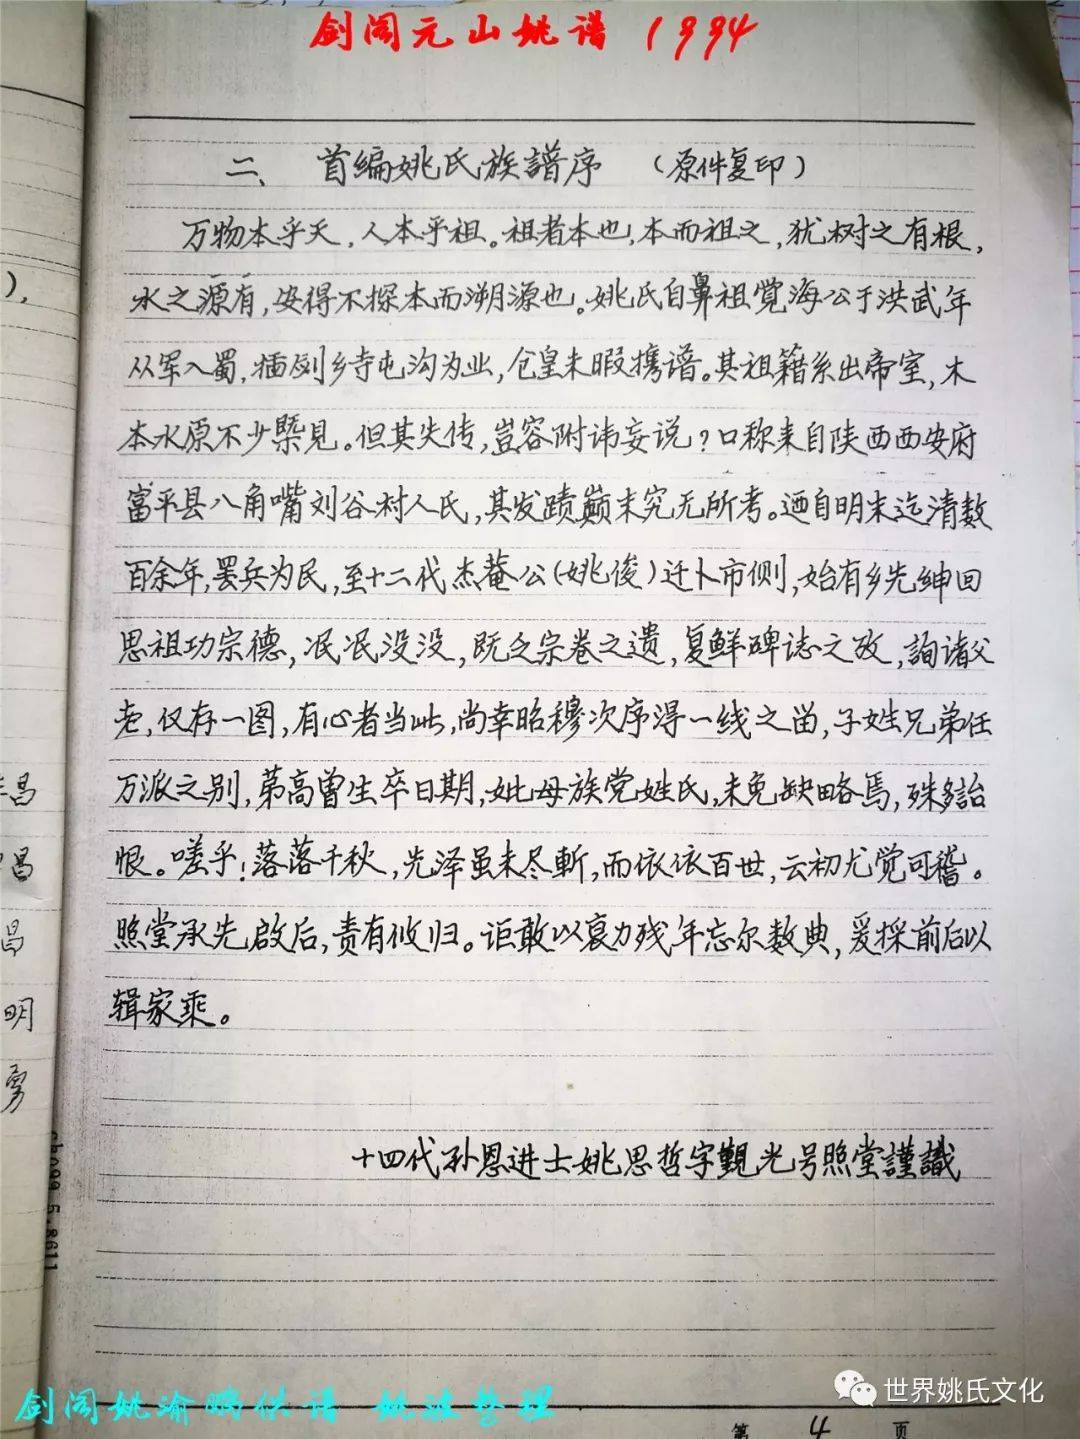 剑阁元山姚谱 1994
二、 首编姚氏族譜序 （原件复印）
万物本乎天，人本乎祖。祖者本也，本而祖之，犹树之有根，
水之源有，安得不探本而溯源也。姚氏自鼻祖覺海公于洪武年
从军入蜀，插剑乡寺屯沟为业，仓皇未暇携谱。其祖籍系出帝室，木
本水原不少槩見。但其失传，豈容附讳妄说？口称来自陕西西安府
富平县八角嘴刘谷村人氏，其发蹟巅末究无所考。迺自明末迄清数
百余年，罢兵为民，至十二代杰菴公（姚俊）迁卜市侧，始有乡先绅回
思祖功宗德，泯泯没没，既乏宗卷之遗，复鲜碑誌之攷，詢诸父
老，仅存一图，有心者当此，尚幸昭穆次序得一线之笛，子姓兄弟任
万派之别，苐高曾生卒日期，妣母族党姓氏，未免缺略焉，殊多詒
恨。嗟乎！落落千秋，先泽虽未尽斬，而依依百世，云初尤觉可稽。
照堂承先啟后，责有攸归。讵敢以衰力残年忘尔数典，爰採前后以
辑家乘。
十四代孙恩进士姚思哲字觀光号照堂謹識
昌
昌
昌
明
勇
ch099.5.8611
剑阁姚渝鹏供谱 姚波整理
世界姚氏文化
第 4 页